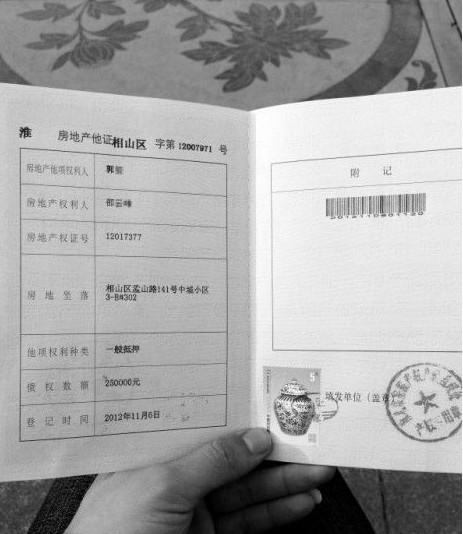 淮 房地产他证相山区 字第12007971 号
房地产他项权利人 郭
房地产权利人 邵云峰
房地产权证号 12017377
房地坐落 相山区孟山路141号中城小区
3-B#302
他项权利种类 一般抵押
债权数额 250000元
登记时间 2012年11月6日
附 记
填发单位（盖章）